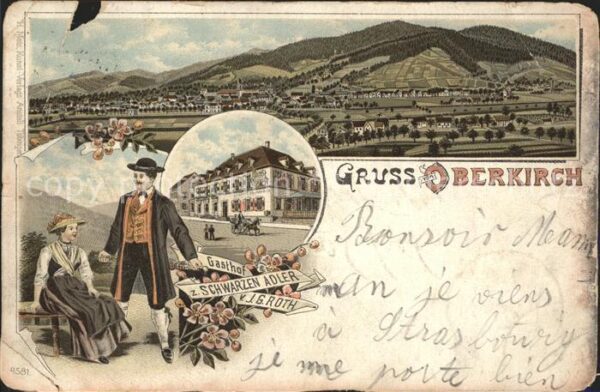 GRUSS aus OBERKIRCH
Gasthof
z. SCHWARZEN ADLER
v. J. G. ROTH
Bonsoir Mam
man je viens
à Strasbourg
je me porte bien
4581